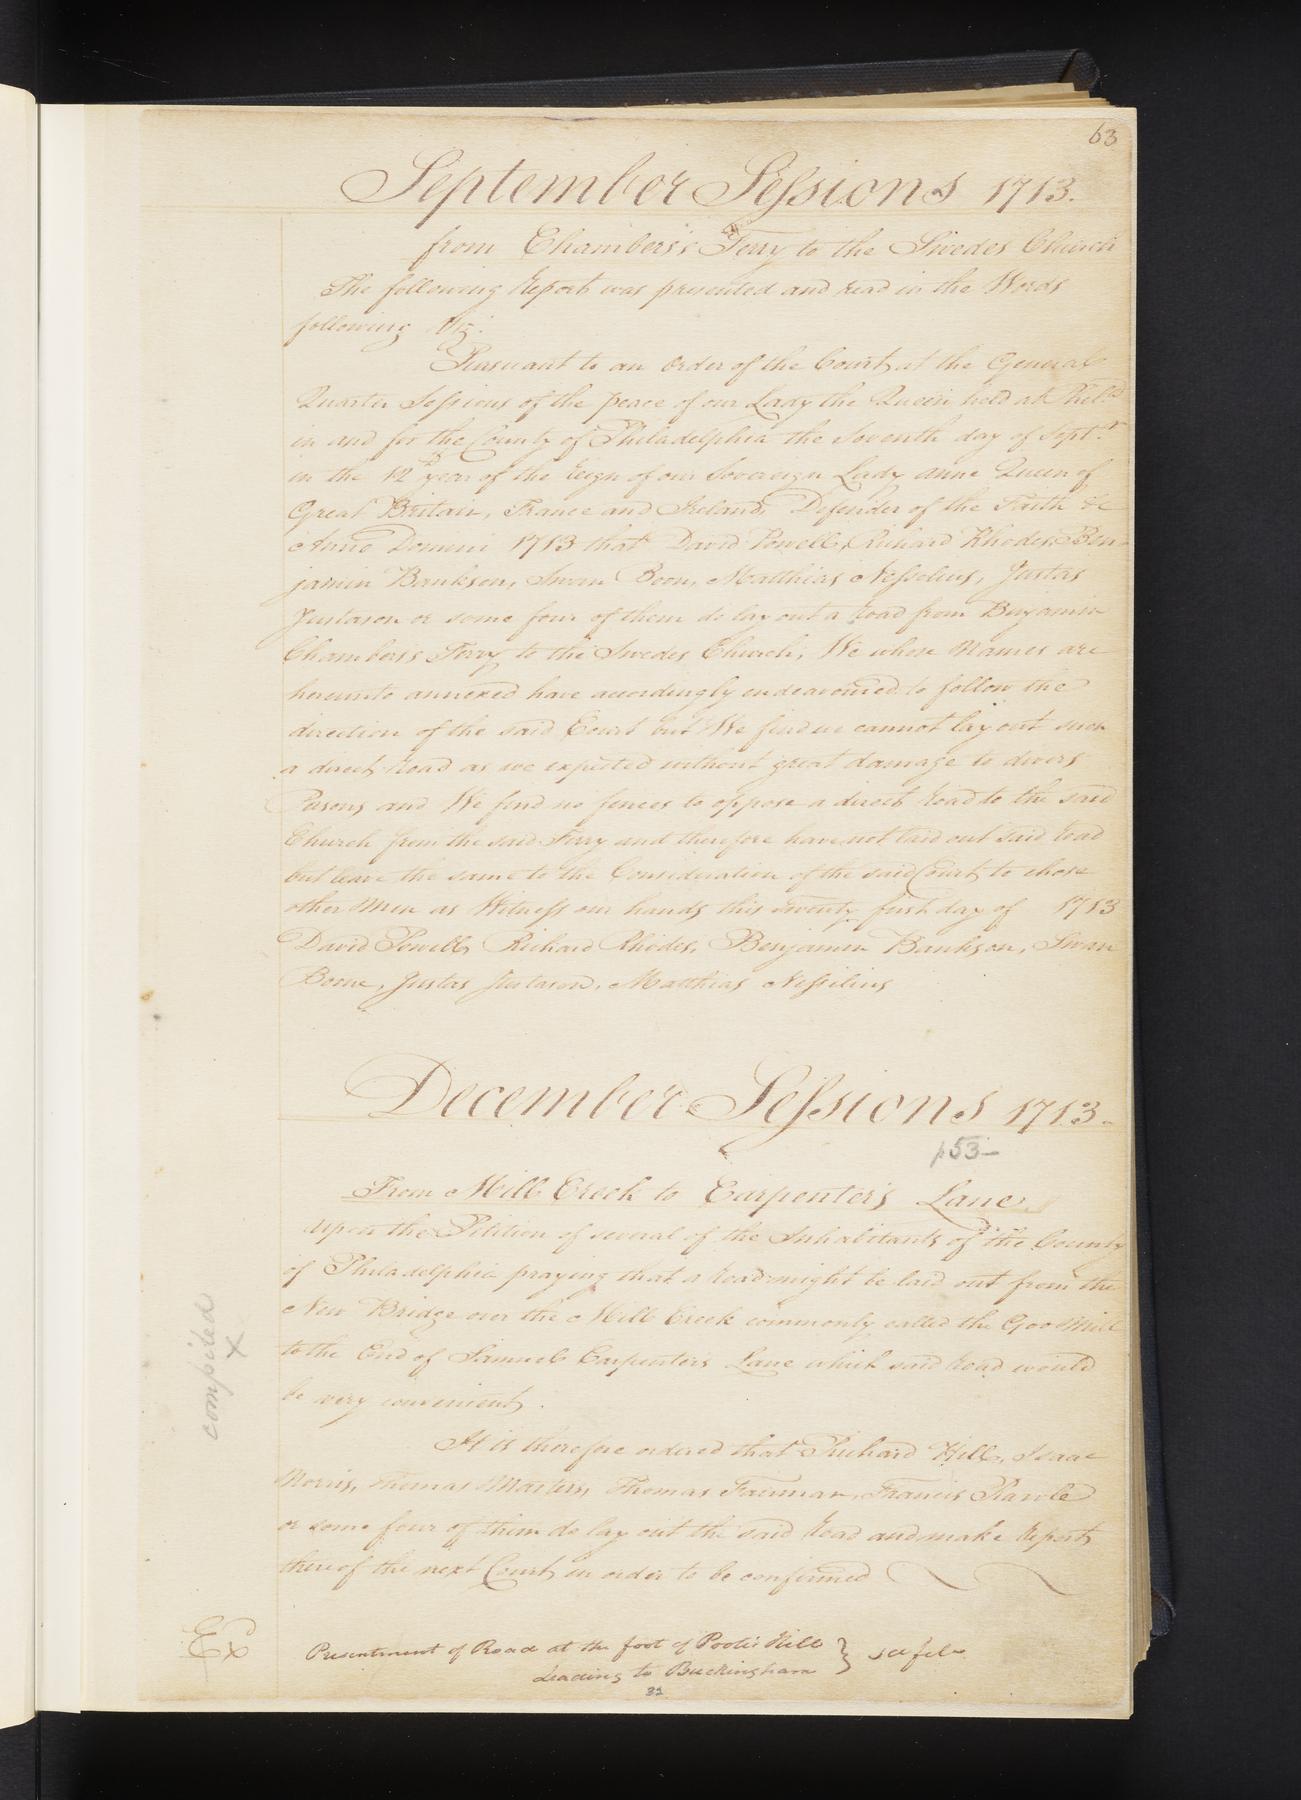 63
September Sessions 1713.
from Chambers's Ferry to the Swedes Church
The following Report was presented and read in the Words
following Viz:
Pursuant to an order of the Court at the General
Quarter Sessions of the peace of our Lady the Queen held at Philada
in and for the County of Philadelphia the Seventh day of Septr.
in the 12th year of the Reign of our Sovereign Lady Anne Queen of
Great Britain, France and Ireland, Defender of the Faith &c
Anno Domini 1713 that David Powell, Richard Rhodes, Ben-
jamin Bankson, Swan Boon, Matthias Nessolius, Justas
Justason or some four of them do lay out a Road from Benjamin
Chambers's Ferry to the Swedes Church, We whose Names are
hereunto annexed have accordingly endeavoured to follow the
direction of the said Court but We find we cannot lay out such
a direct Road as we expected without great damage to divers
Persons and We find no fences to oppose a direct Road to the said
Church from the said Ferry and therefore have not laid out said Road
but leave the same to the Consideration of the said Court to chose
other Men as Witness our hands this twenty first day of 1713
David Powell, Richard Rhodes, Benjamin Bankson, Swan
Boone, Justas Justason, Matthias Nessilius
December Sessions 1713.
p53-
From Mill Creek to Carpenter's Lane
Upon the Petition of several of the Inhabitants of the County
of Philadelphia praying that a Road might be laid out from the
New Bridge over the Mill Creek commonly called the Gov Mill
to the End of Samuel Carpenter's Lane which said Road would
be very convenient.
compiled
x
It is therefore ordered that Richard Hill, Isaac
Norris, Thomas Masters, Thomas Fairman, Francis Rawle
or some four of them do lay out the said Road and make Report
thereof the next Court in order to be confirmed
Ex
Presentment of Road at the foot of Pooter Hill } see file
Leading to Buckingham
32